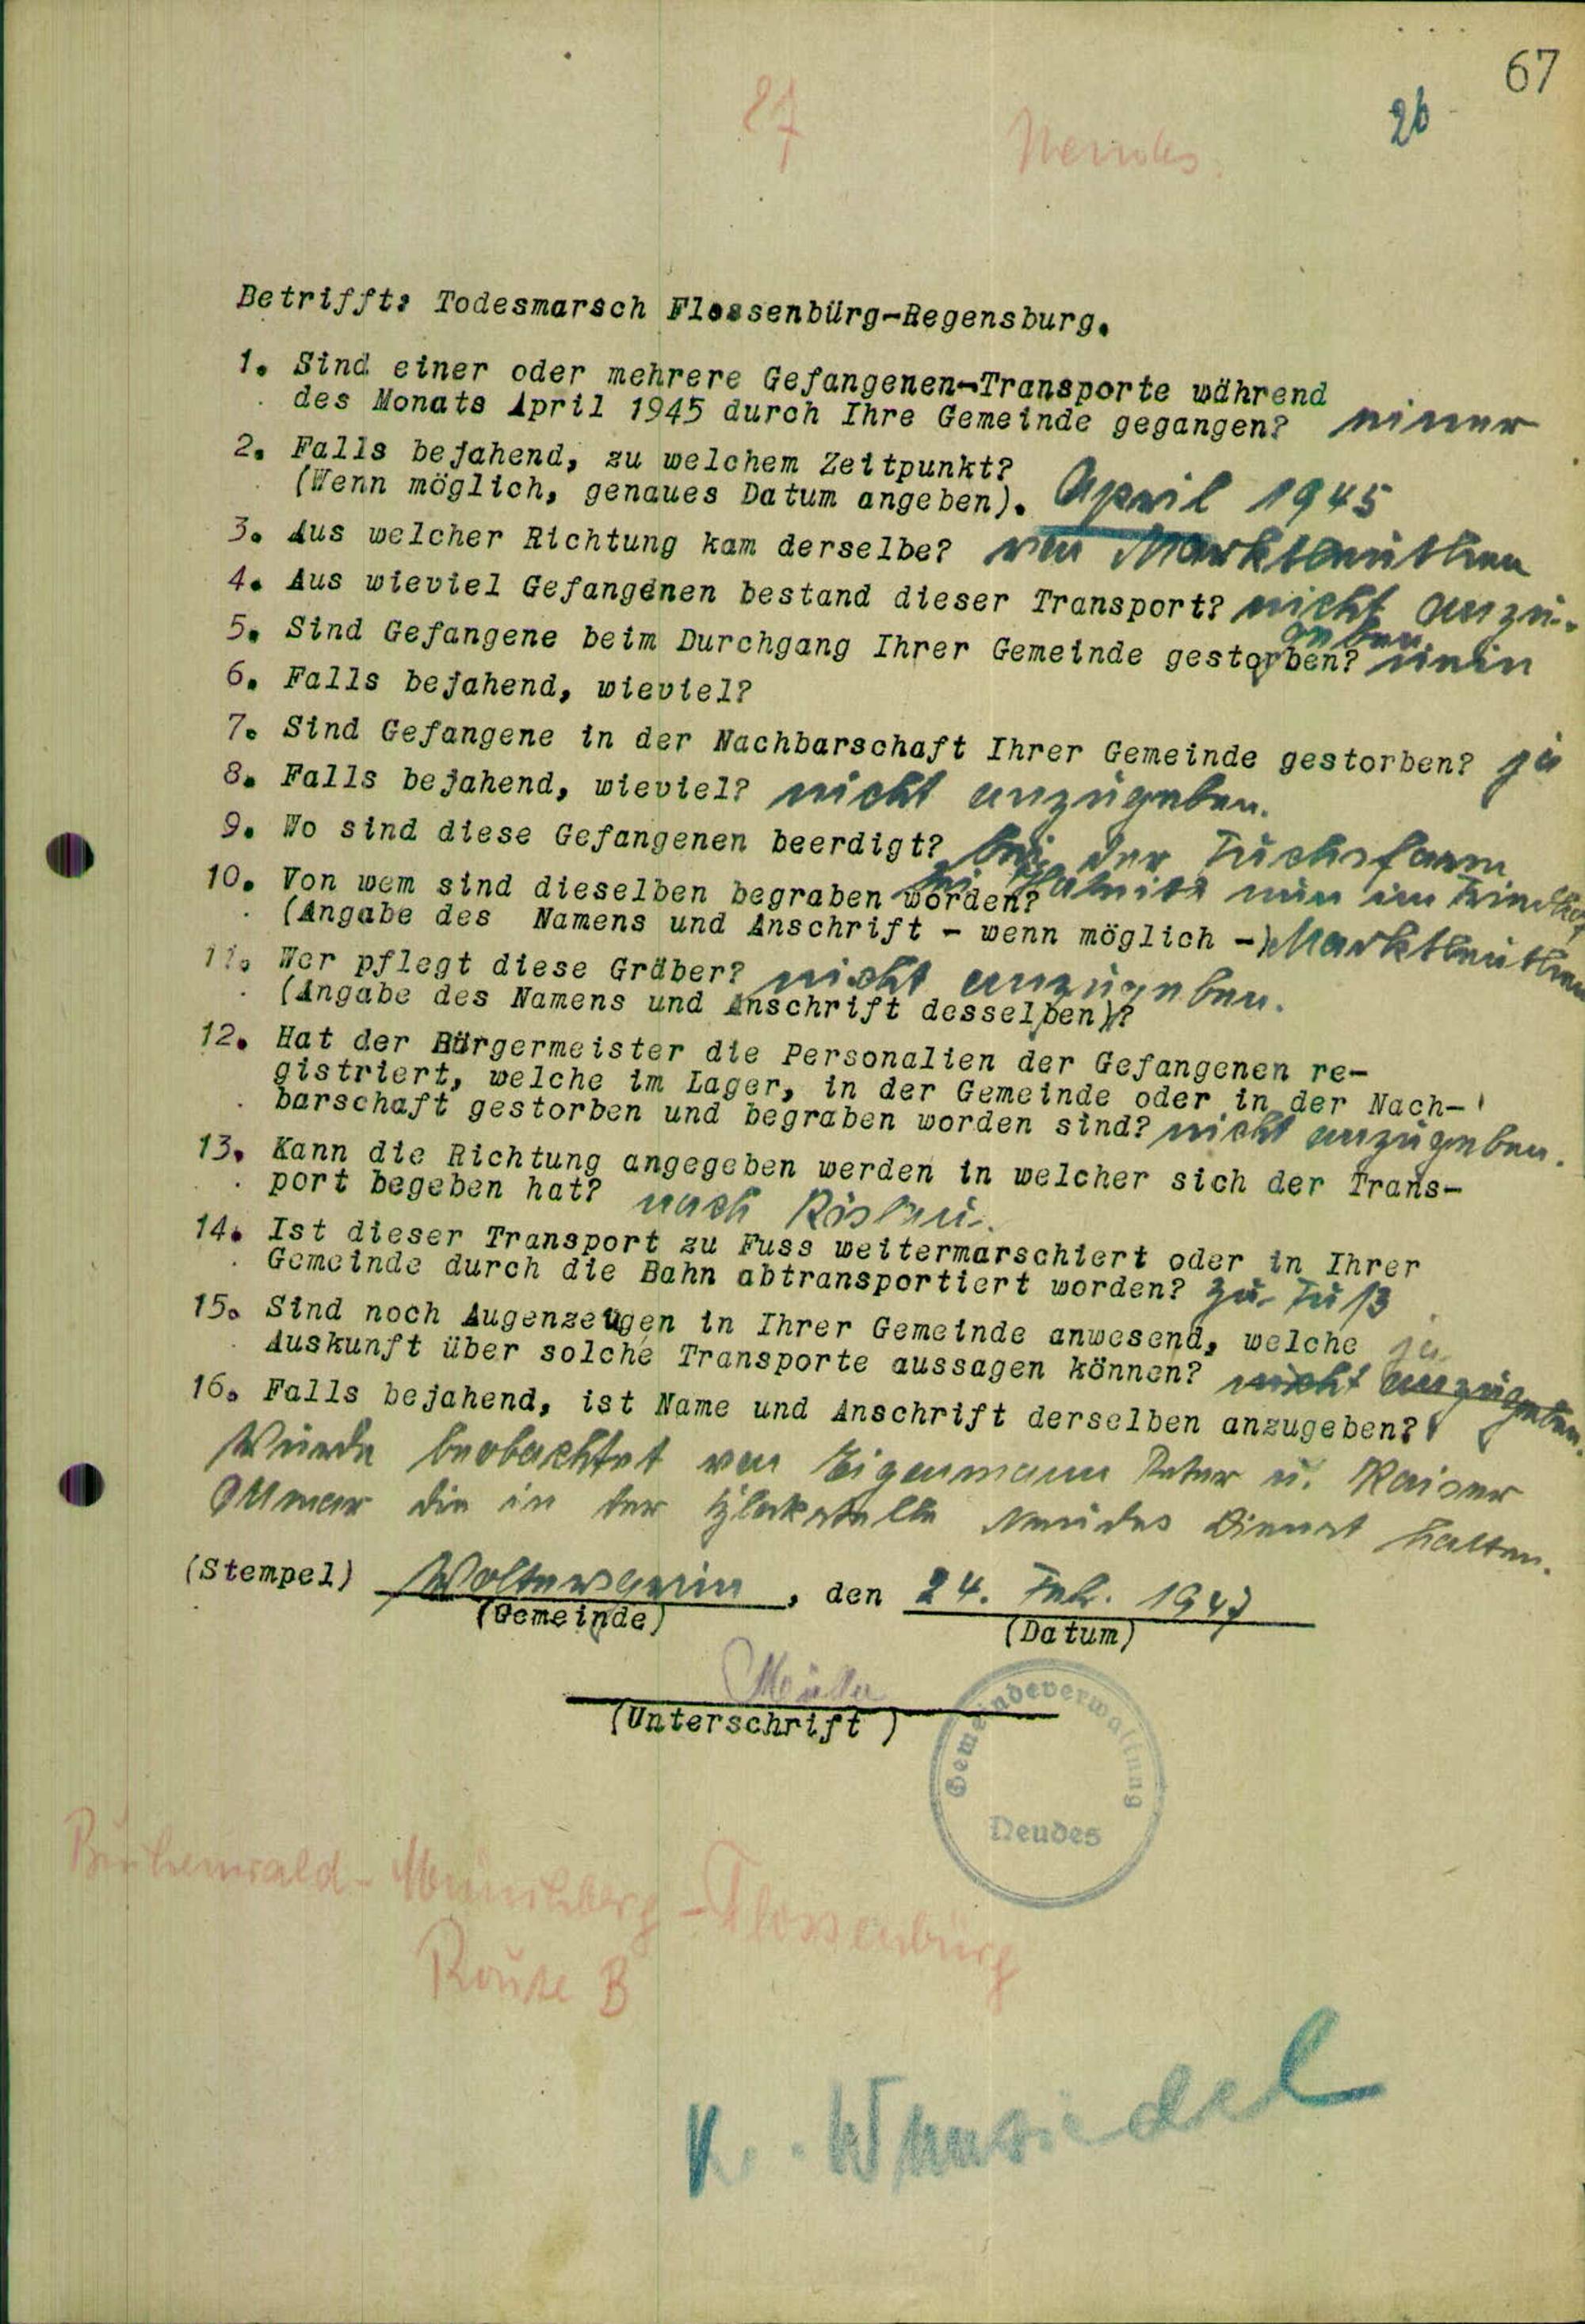 67
26
27
Neudes.
Betrifft: Todesmarsch Flossenbürg-Regensburg.
1. Sind einer oder mehrere Gefangenen-Transporte während
des Monats April 1945 durch Ihre Gemeinde gegangen? einer
2. Falls bejahend, zu welchem Zeitpunkt?
(Wenn möglich, genaues Datum angeben). April 1945
3. Aus welcher Richtung kam derselbe? von Marktleuthen
4. Aus wieviel Gefangenen bestand dieser Transport? nicht anzu-
geben
5. Sind Gefangene beim Durchgang Ihrer Gemeinde gestorben? nein
6. Falls bejahend, wieviel?
7. Sind Gefangene in der Nachbarschaft Ihrer Gemeinde gestorben? ja
8. Falls bejahend, wieviel? nicht anzugeben.
9. Wo sind diese Gefangenen beerdigt? bei der Fuchsfarm
nun im Friedhof
10. Von wem sind dieselben begraben worden?
(Angabe des Namens und Anschrift - wenn möglich -) Marktleuthen
11. Wer pflegt diese Gräber? nicht anzugeben.
(Angabe des Namens und Anschrift desselben)?
12. Hat der Bürgermeister die Personalien der Gefangenen re-
gistriert, welche im Lager, in der Gemeinde oder in der Nach-
barschaft gestorben und begraben worden sind? nicht anzugeben.
13. Kann die Richtung angegeben werden in welcher sich der Trans-
port begeben hat? nach Röslau.
14. Ist dieser Transport zu Fuss weitermarschiert oder in Ihrer
Gemeinde durch die Bahn abtransportiert worden? zu Fuß
15. Sind noch Augenzeugen in Ihrer Gemeinde anwesend, welche ja
Auskunft über solche Transporte aussagen können? nicht anzugeben.
16. Falls bejahend, ist Name und Anschrift derselben anzugeben?
Wurde beobachtet von Eigenmann Peter u. Kaiser
Ottmar die in der Blockstelle Neudes Dienst hatten.
(Stempel) Woltersgrün, den 24. Feb. 1947
(Gemeinde) (Datum)
Müller
(Unterschrift)
Gemeindeverwaltung
Neudes
Buchenwald - Münchberg - Flossenbürg
Route B
K. Wunsiedel